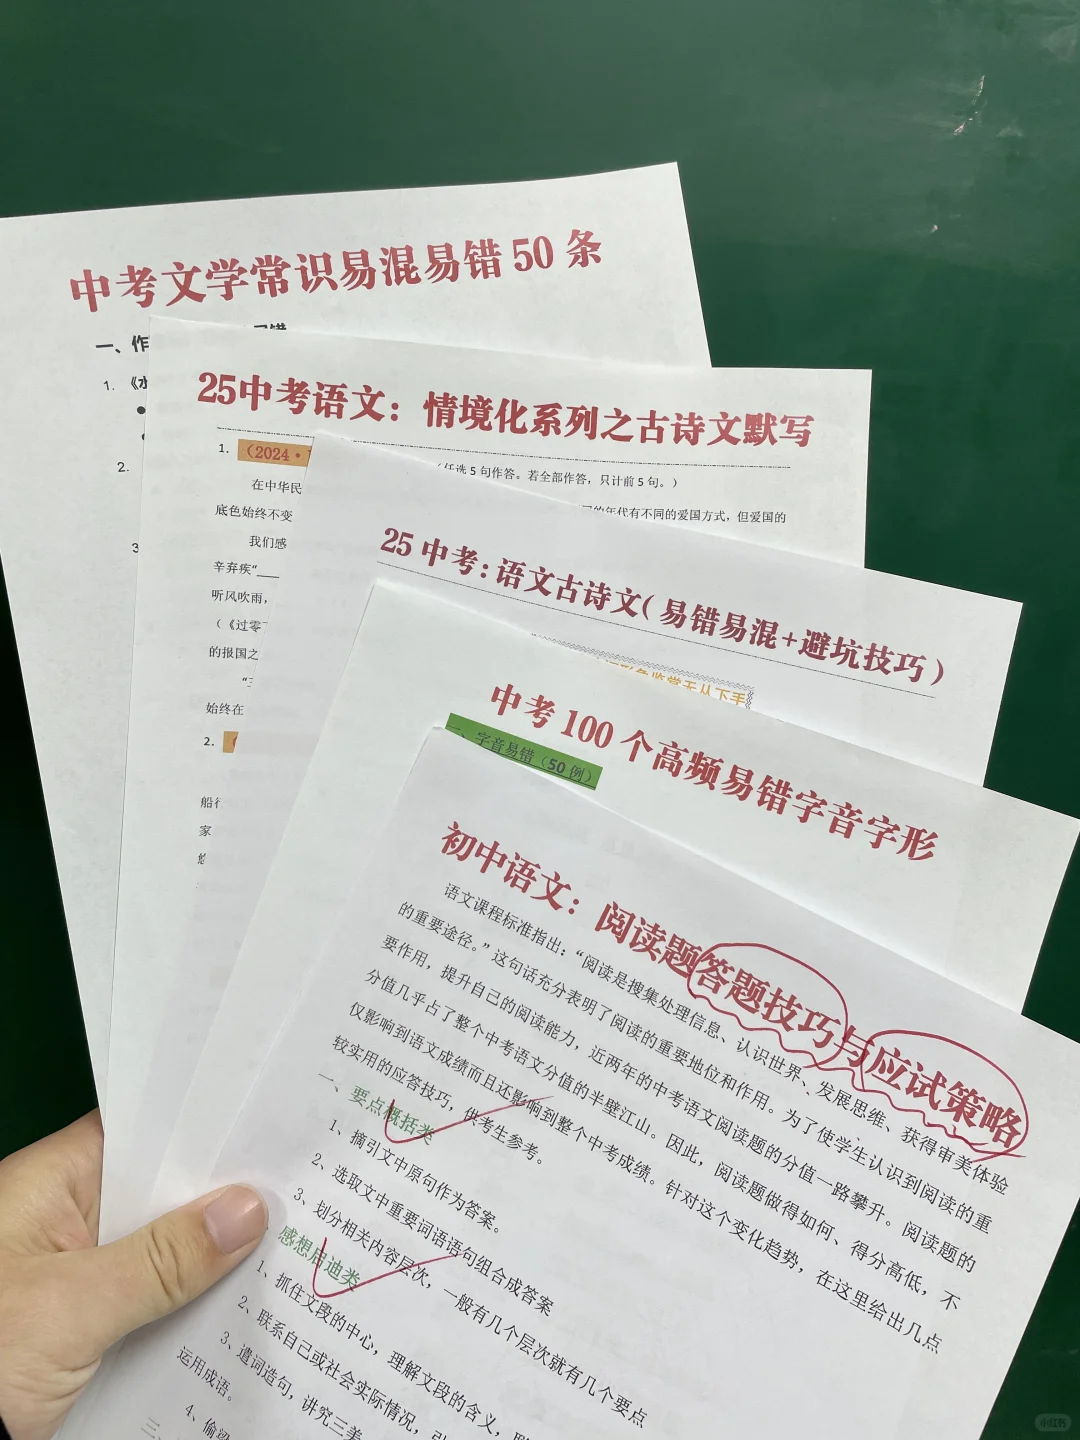 中考文学常识易混易错50条
一、作
1. 《水
2.
3
25中考语文：情境化系列之古诗文默写
1. （2024·
任选5句作答。若全部作答，只计前5句。）
在中华民
的年代有不同的爱国方式，但爱国的
底色始终不变
我们感
辛弃疾“
听风吹雨，
（《过零
的报国之
始终在
2.
船行
家
25中考：语文古诗文（易错易混+避坑技巧）
鉴赏无从下手
中考100个高频易错字音字形
一、字音易错（50例）
初中语文：阅读题答题技巧与应试策略
语文课程标准指出：“阅读是搜集处理信息、认识世界、发展思维、获得审美体验
的重要途径。”这句话充分表明了阅读的重要地位和作用。为了使学生认识到阅读的重
要作用，提升自己的阅读能力，近两年的中考语文阅读题的分值一路攀升。阅读题的
分值几乎占了整个中考语文分值的半壁江山。因此，阅读题做得如何、得分高低，不
仅影响到语文成绩而且还影响到整个中考成绩。针对这个变化趋势，在这里给出几点
较实用的应答技巧，供考生参考。
一、要点概括类
1、摘引文中原句作为答案。
2、选取文中重要词语语句组合成答案
3、划分相关内容层次，一般有几个层次就有几个要点
感想启迪类
1、抓住文段的中心，理解文段的含义，
2、联系自己或社会实际情况，
3、遣词造句，讲究三美
运用成语。
4、偷梁
三、
小红书